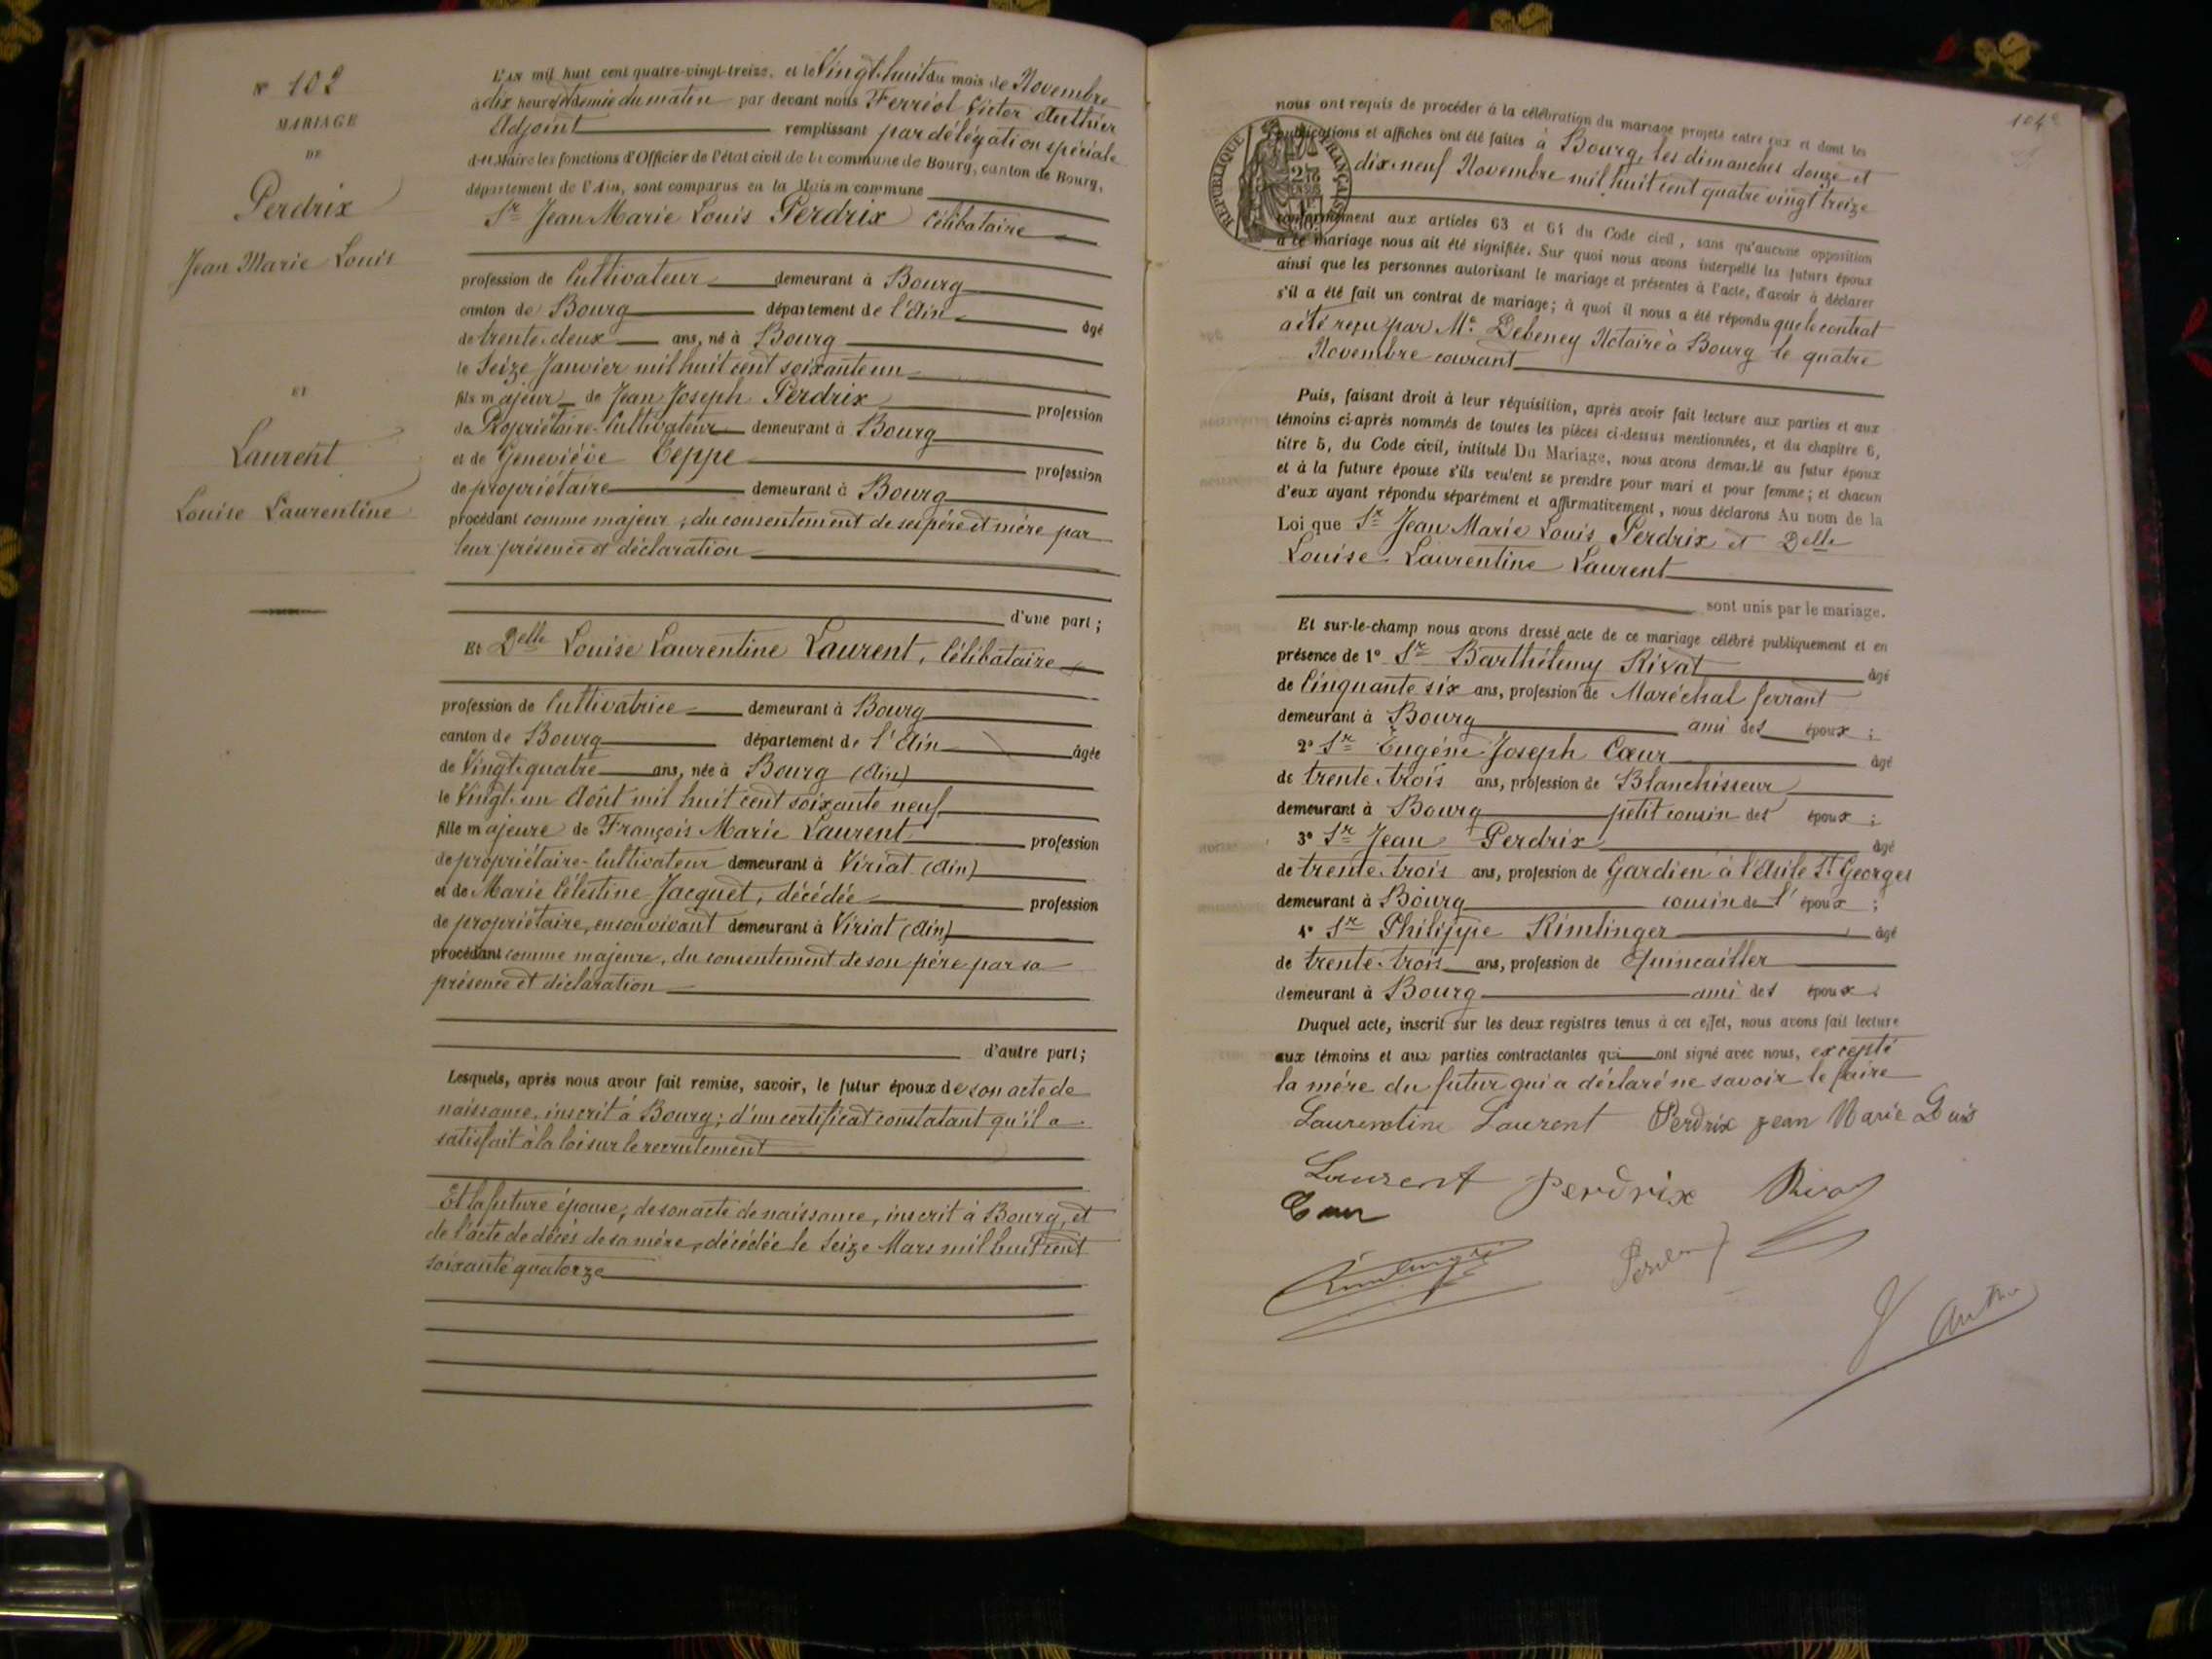 N° 102
MARIAGE
DE
Perdrix
Jean Marie Louis
ET
Laurent
Louise Laurentine
L'AN mil huit cent quatre-vingt-treize, et le Vingt-huit du mois de Novembre
à dix heures et demie du matin par devant nous Ferréol Victor Authier
Adjoint remplissant par délégation spéciale
du Maire les fonctions d'Officier de l'état civil de la commune de Bourg, canton de Bourg,
département de l'Ain, sont comparus en la Maison commune
Sr Jean Marie Louis Perdrix Célibataire
profession de Cultivateur demeurant à Bourg
canton de Bourg département de l'Ain âgé
de trente-deux ans, né à Bourg
le Seize Janvier mil huit cent soixante un
fils majeur de Jean Joseph Perdrix profession
de Propriétaire-Cultivateur demeurant à Bourg
et de Geneviève Ceppe profession
de propriétaire demeurant à Bourg
procédant comme majeur, du consentement de ses père et mère par
leur présence et déclaration
d'une part;
Et Delle Louise Laurentine Laurent, Célibataire
profession de Cultivatrice demeurant à Bourg
canton de Bourg département de l'Ain âgée
de Vingt-quatre ans, née à Bourg (Ain)
le Vingt-un Août mil huit cent soixante neuf
fille majeure de François Marie Laurent profession
de propriétaire-Cultivateur demeurant à Viriat (Ain)
et de Marie Célestine Jacquet, décédée profession
de propriétaire, en son vivant demeurant à Viriat (Ain)
procédant comme majeure, du consentement de son père par sa
présence et déclaration
d'autre part;
Lesquels, après nous avoir fait remise, savoir, le futur époux de son acte de
naissance, inscrit à Bourg; d'un certificat constatant qu'il a
satisfait à la loi sur le recrutement
Et la future épouse, de son acte de naissance, inscrit à Bourg, et
de l'acte de décès de sa mère, décédée le Seize Mars mil huit cent
soixante quatorze
104e
RÉPUBLIQUE FRANÇAISE
nous ont requis de procéder à la célébration du mariage projeté entre eux et dont les
publications et affiches ont été faites à Bourg, les dimanches douze et
dix-neuf Novembre mil huit cent quatre vingt treize
conformément aux articles 63 et 64 du Code civil, sans qu'aucune opposition
à ce mariage nous ait été signifiée. Sur quoi nous avons interpellé les futurs époux
ainsi que les personnes autorisant le mariage et présentes à l'acte, d'avoir à déclarer
s'il a été fait un contrat de mariage; à quoi il nous a été répondu que le contrat
a été reçu par Me. Debeney Notaire à Bourg le quatre
Novembre courant
Puis, faisant droit à leur réquisition, après avoir fait lecture aux parties et aux
témoins ci-après nommés de toutes les pièces ci-dessus mentionnées, et du chapitre 6,
titre 5, du Code civil, intitulé Du Mariage, nous avons demandé au futur époux
et à la future épouse s'ils veulent se prendre pour mari et pour femme; et chacun
d'eux ayant répondu séparément et affirmativement, nous déclarons Au nom de la
Loi que Sr Jean Marie Louis Perdrix et Delle
Louise-Laurentine Laurent
sont unis par le mariage.
Et sur-le-champ nous avons dressé acte de ce mariage célébré publiquement et en
présence de 1° Sr Barthélemy Rivat âgé
de Cinquante six ans, profession de Maréchal ferrant
demeurant à Bourg ami des époux;
2° Sr Eugène-Joseph Cœur âgé
de trente-trois ans, profession de Blanchisseur
demeurant à Bourg petit cousin des époux;
3° Sr Jean Perdrix âgé
de trente-trois ans, profession de Gardien à l'Asile St Georges
demeurant à Bourg cousin de l' époux;
4° Sr Philippe Rimlinger âgé
de trente-trois ans, profession de Quincailler
demeurant à Bourg ami des époux.
Duquel acte, inscrit sur les deux registres tenus à cet effet, nous avons fait lecture
aux témoins et aux parties contractantes qui ont signé avec nous, excepté
la mère du futur qui a déclaré ne savoir le faire
Laurentine Laurent Perdrix jean Marie Louis
Laurent perdrix Rivat
Cœur
Rimlinger